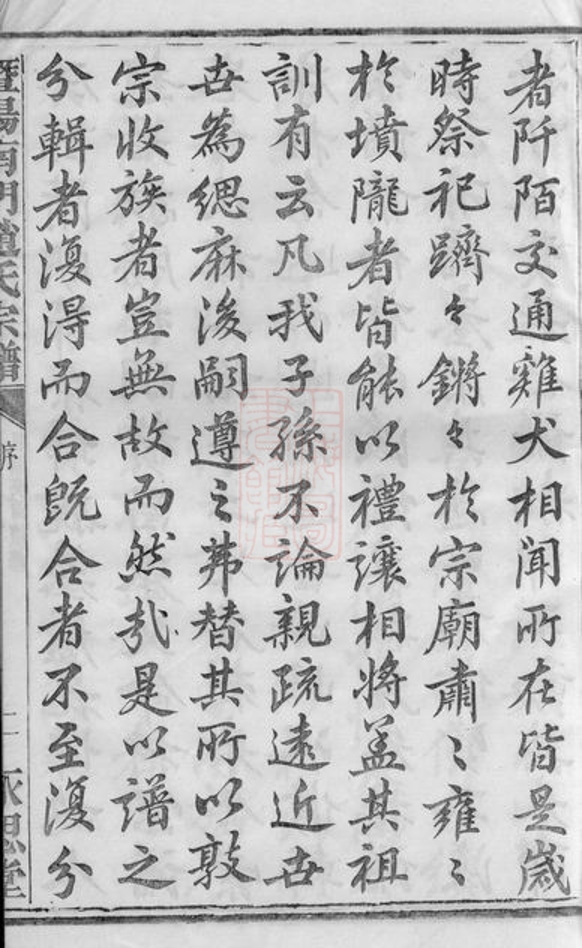 者阡陌交通雞犬相聞所在皆是歲
時祭祀躋々鏘々於宗廟肅々雍々
於墳隴者皆能以禮讓相將葢其祖
訓有云凡我子孫不論親疏遠近世
世爲緦麻後嗣遵之弗替其所以敦
宗收族者豈無故而然哉是以譜之
分輯者復得而合旣合者不至復分
暨陽南門趙氏宗譜
序
二
永思堂